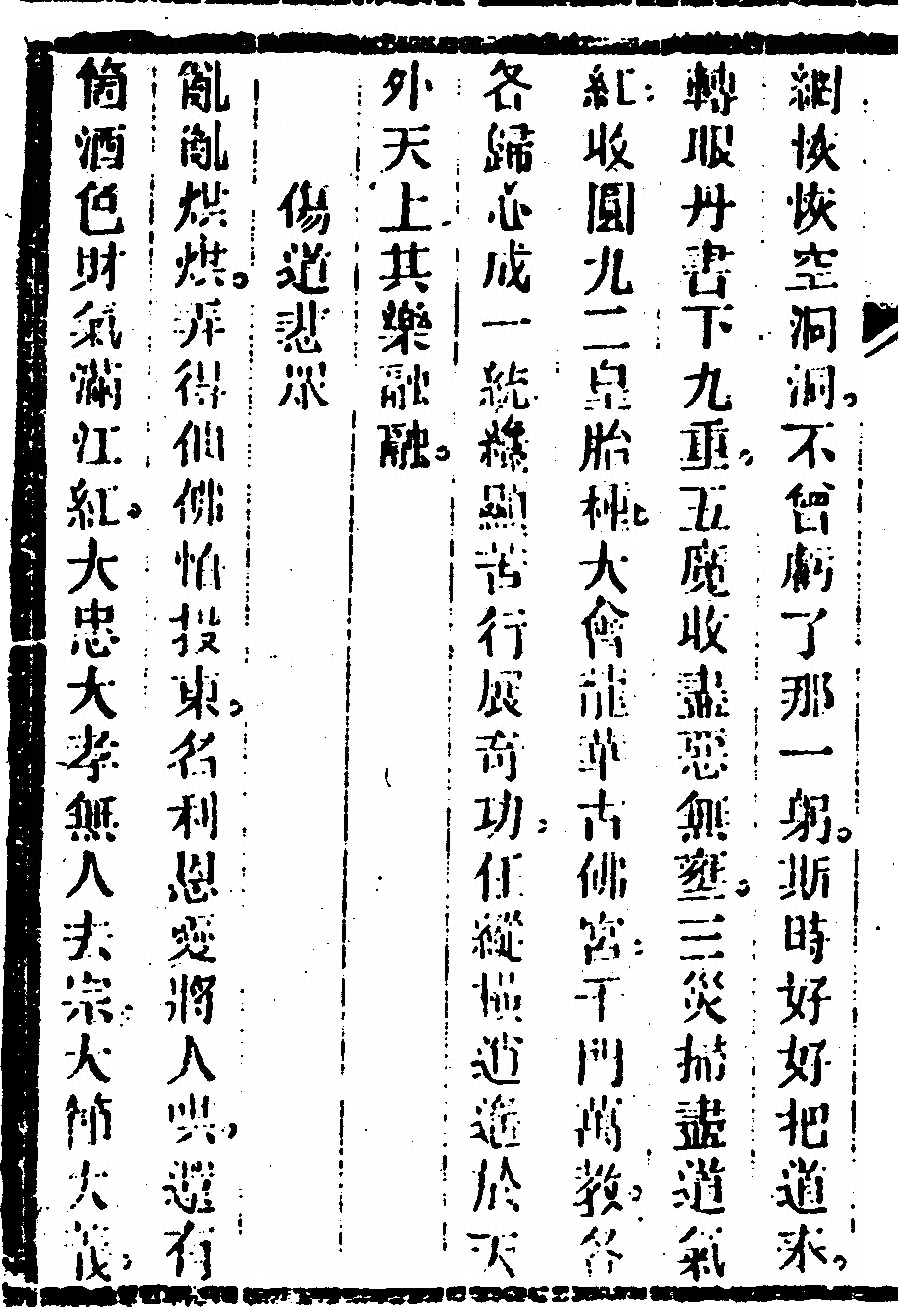 網恢恢空洞洞。不曾虧了那一躬。斯時好好把道求。
轉眼丹書下九重。五魔收盡惡無壅。三災掃盡道氣
紅。收圓九二皇胎種。大會龍華古佛宮。千門萬教。各
各歸心成一統。纔顯苦行展奇功。任縱橫逍遙於天
外天上其樂融融。
傷道悲眾
亂亂烘烘。弄得仙佛怕投東。名利恩愛將人哄。還有
箇酒色財氣滿江紅。大忠大孝無人去宗。大節大義。